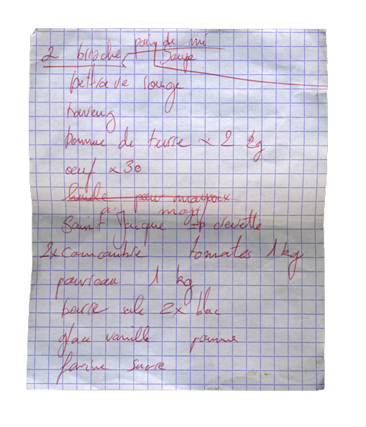 2 brioche, pain de mi
Sauge
bettrave rouge
hareng
pomme de terre x 2 kg
oeuf x 30
Saint Jacque
2x concombre tomates 1 kg
poireau 1 kg
beurre salé 2x bloc
glace vanille pomme
farine sucre